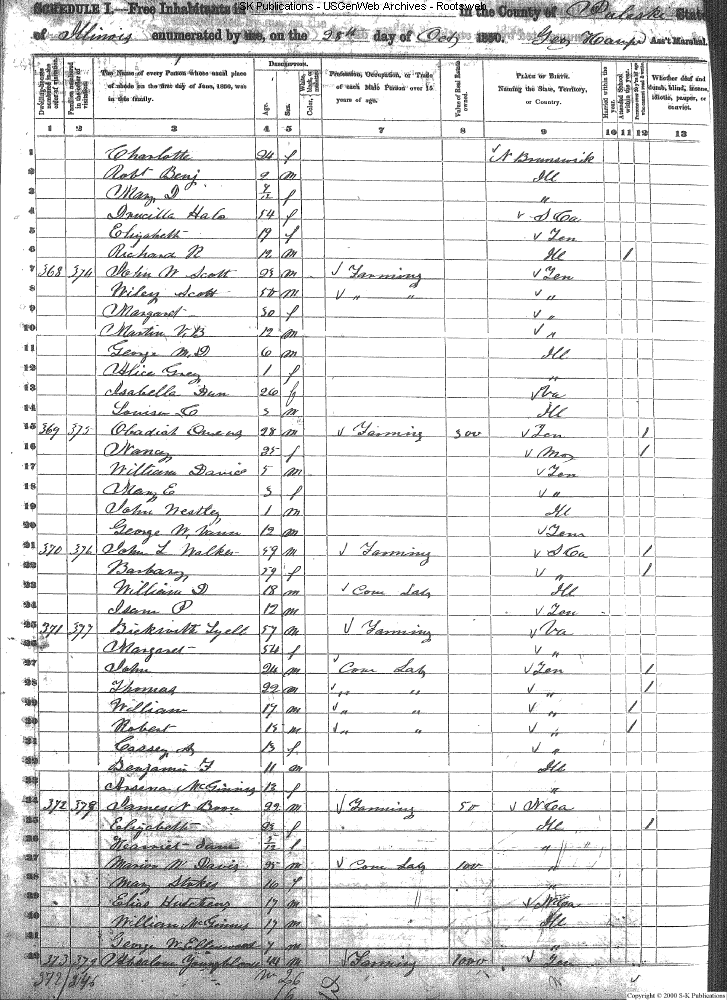 SK Publications - USGenWeb Archives - Rootsweb
SCHEDULE I.—Free Inhabitants in in the County of Pulaski State
of Illinois enumerated by me, on the 25th day of Oct 1850. Ass't Marshal.
DESCRIPTION.
The Name of every Person whose usual place of abode on the first day of June, 1850, was in this family.
Age.
Sex.
Profession, Occupation, or Trade of each Male Person over 15 years of age.
Value of Real Estate owned.
PLACE OF BIRTH. Naming the State, Territory, or Country.
Married within the year.
Attended School within the year.
Whether deaf and dumb, blind, insane, idiotic, pauper, or convict.
1 2 3 4 5 6 7 8 9 10 11 12 13
1 Charlotte 24 f N Brunswick
2 Robt Benj 2 m Ill
3 Mary D f "
4 Drucilla Hale 54 f S Ca
5 Elizabeth 19 f Ten
6 Richard R 12 m Ill /
7 368 374 John W Scott 23 m Farming Ten
8 Wiley Scott 50 m " " "
9 Margaret 30 f "
10 Martin V.B 12 m "
11 George M.D 6 m Ill
12 Alice Grey 1 f "
13 Isabella 26 f Va
14 Louisa C 3 m Ill
15 369 375 Obadiah Owens 28 m Farming 300 Ten /
16 Nancy 25 f Mo /
17 William David 5 m Ten
18 Mary E 3 f "
19 John Westley 1 m Ill
20 George W. Vann 12 m Tenn
21 370 376 John L Walker 59 m Farming S Ca /
22 Barbary 59 f " /
23 William D 18 m Com Lab Ill
24 Isam P 12 m Ten
25 371 377 Beckwith Lyell 57 m Farming Va
26 Margaret 54 f "
27 John 24 m Com Lab Ten /
28 Thomas 22 m " " " /
29 William 17 m " " " /
30 Robert 15 m " " " /
31 Cassey A 13 f "
32 Benjamin F 11 m Ill
33 McGinnis 12 f "
34 372 378 James N Boon 22 m Farming 50 N Ca
35 Elizabeth 23 f Ill /
36 Harriet Jane f "
37 Marion W Davis 25 m Com Lab 100 "
38 Mary Stokes 16 f "
39 Elias 17 m " N Ca
40 William McGinnis 17 m Ill
41 George W 7 m "
42 373 379 Absalom Youngblood 44 m Farming 1000 Ten
Copyright © 2000 S-K Publications